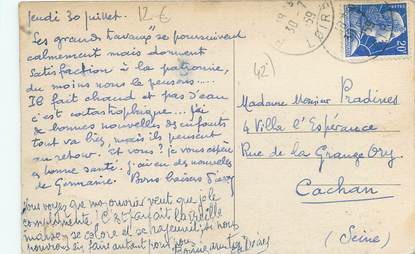 Jeudi 30 juillet.
12 €
Les grands travaux se poursuivent
calmement mais donnent
satisfaction à la patronne,
du moins nous le pensons....
Il fait chaud et pas d'eau
c'est catastrophique... J'ai
de bonnes nouvelles des enfants
tout va bien, mais ils peuvent
au retour. Et vous? je vous espère
en bonne santé. J'ai eu des nouvelles
de Germaine. Bons baisers
Vous voyez que mon ouvrier veut que je le
complimente! C'est parfait la vieille
maison se colore et se rajeunit, si nous
pouvions en faire autant pour nous
Bonne
42
30-7
59
LOIRE
20F
Madame Monsieur Pradines
4 Villa l'Espérance
Rue de la Grange Ory
Cachan
(Seine)